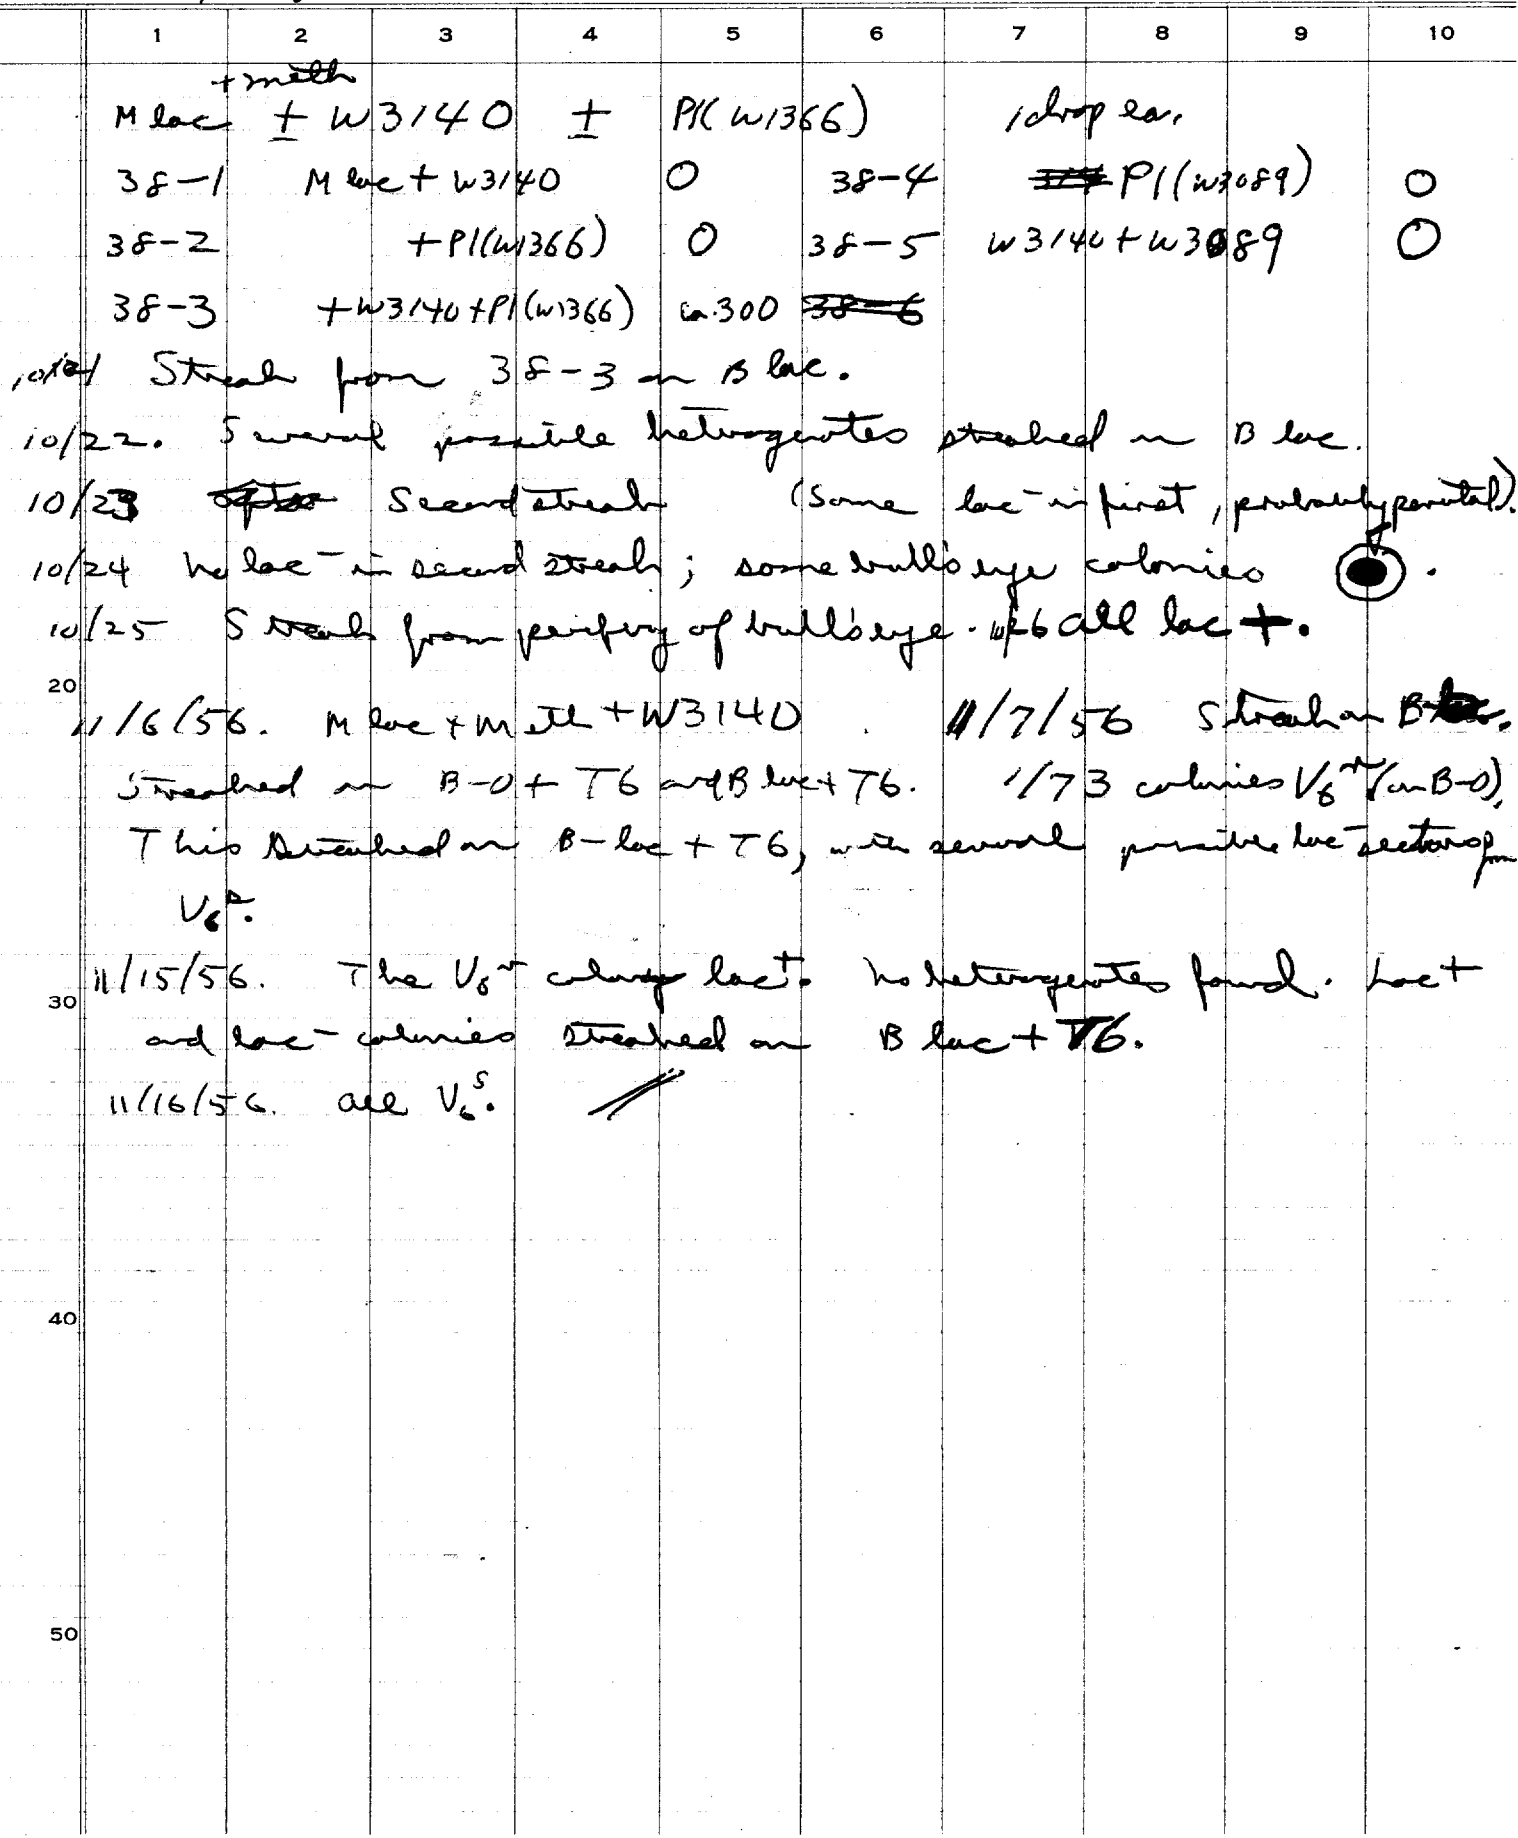 1 2 3 4 5 6 7 8 9 10
+ meth
M lac ± W3140 ± P1(W1366) 1 drop ea.
38-1 M lac + W3140 0 38-4 P1(W3089) 0
38-2 + P1(W1366) 0 38-5 W3140 + W3089 0
38-3 + W3140 + P1(W1366) ca. 300 38-6
10/21 Streak from 38-3 on B lac.
10/22. Several possible heterogenotes streaked on B lac.
10/23 Second streak (Some lac- in first, probably parental).
10/24 No lac- in second streak; some bull's eye colonies .
10/25 Streak from periphery of bull's eye. 10/26 all lac +.
20
11/6/56. M lac + Meth + W3140 . 11/7/56 Streak on B
Streaked on B-0 + T6 and B lac + T6. 1/73 colonies V6r (on B-0).
This streaked on B-lac + T6, with several possible lac- sectors from
V6s.
11/15/56. The V6r colony lac+. No heterogenotes found. Lac+
30
and lac- colonies streaked on B lac + T6.
11/16/56. all V6s.
40
50